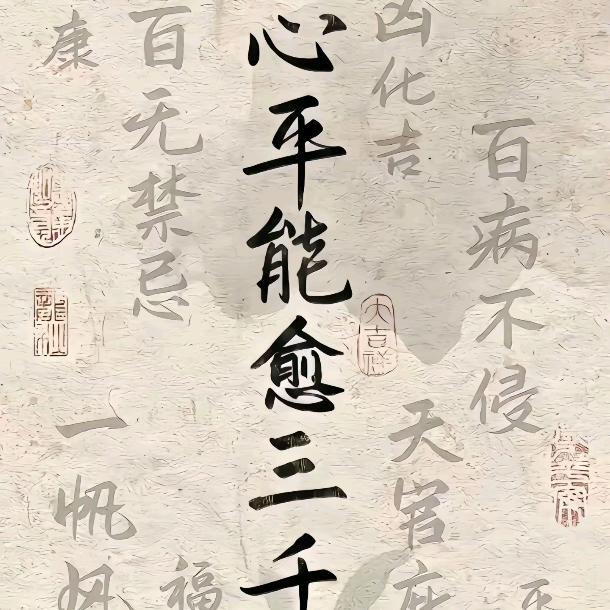 百病不侵
凶化吉
天官
大吉祥
心平能愈三千
百无禁忌
福
康
一帆